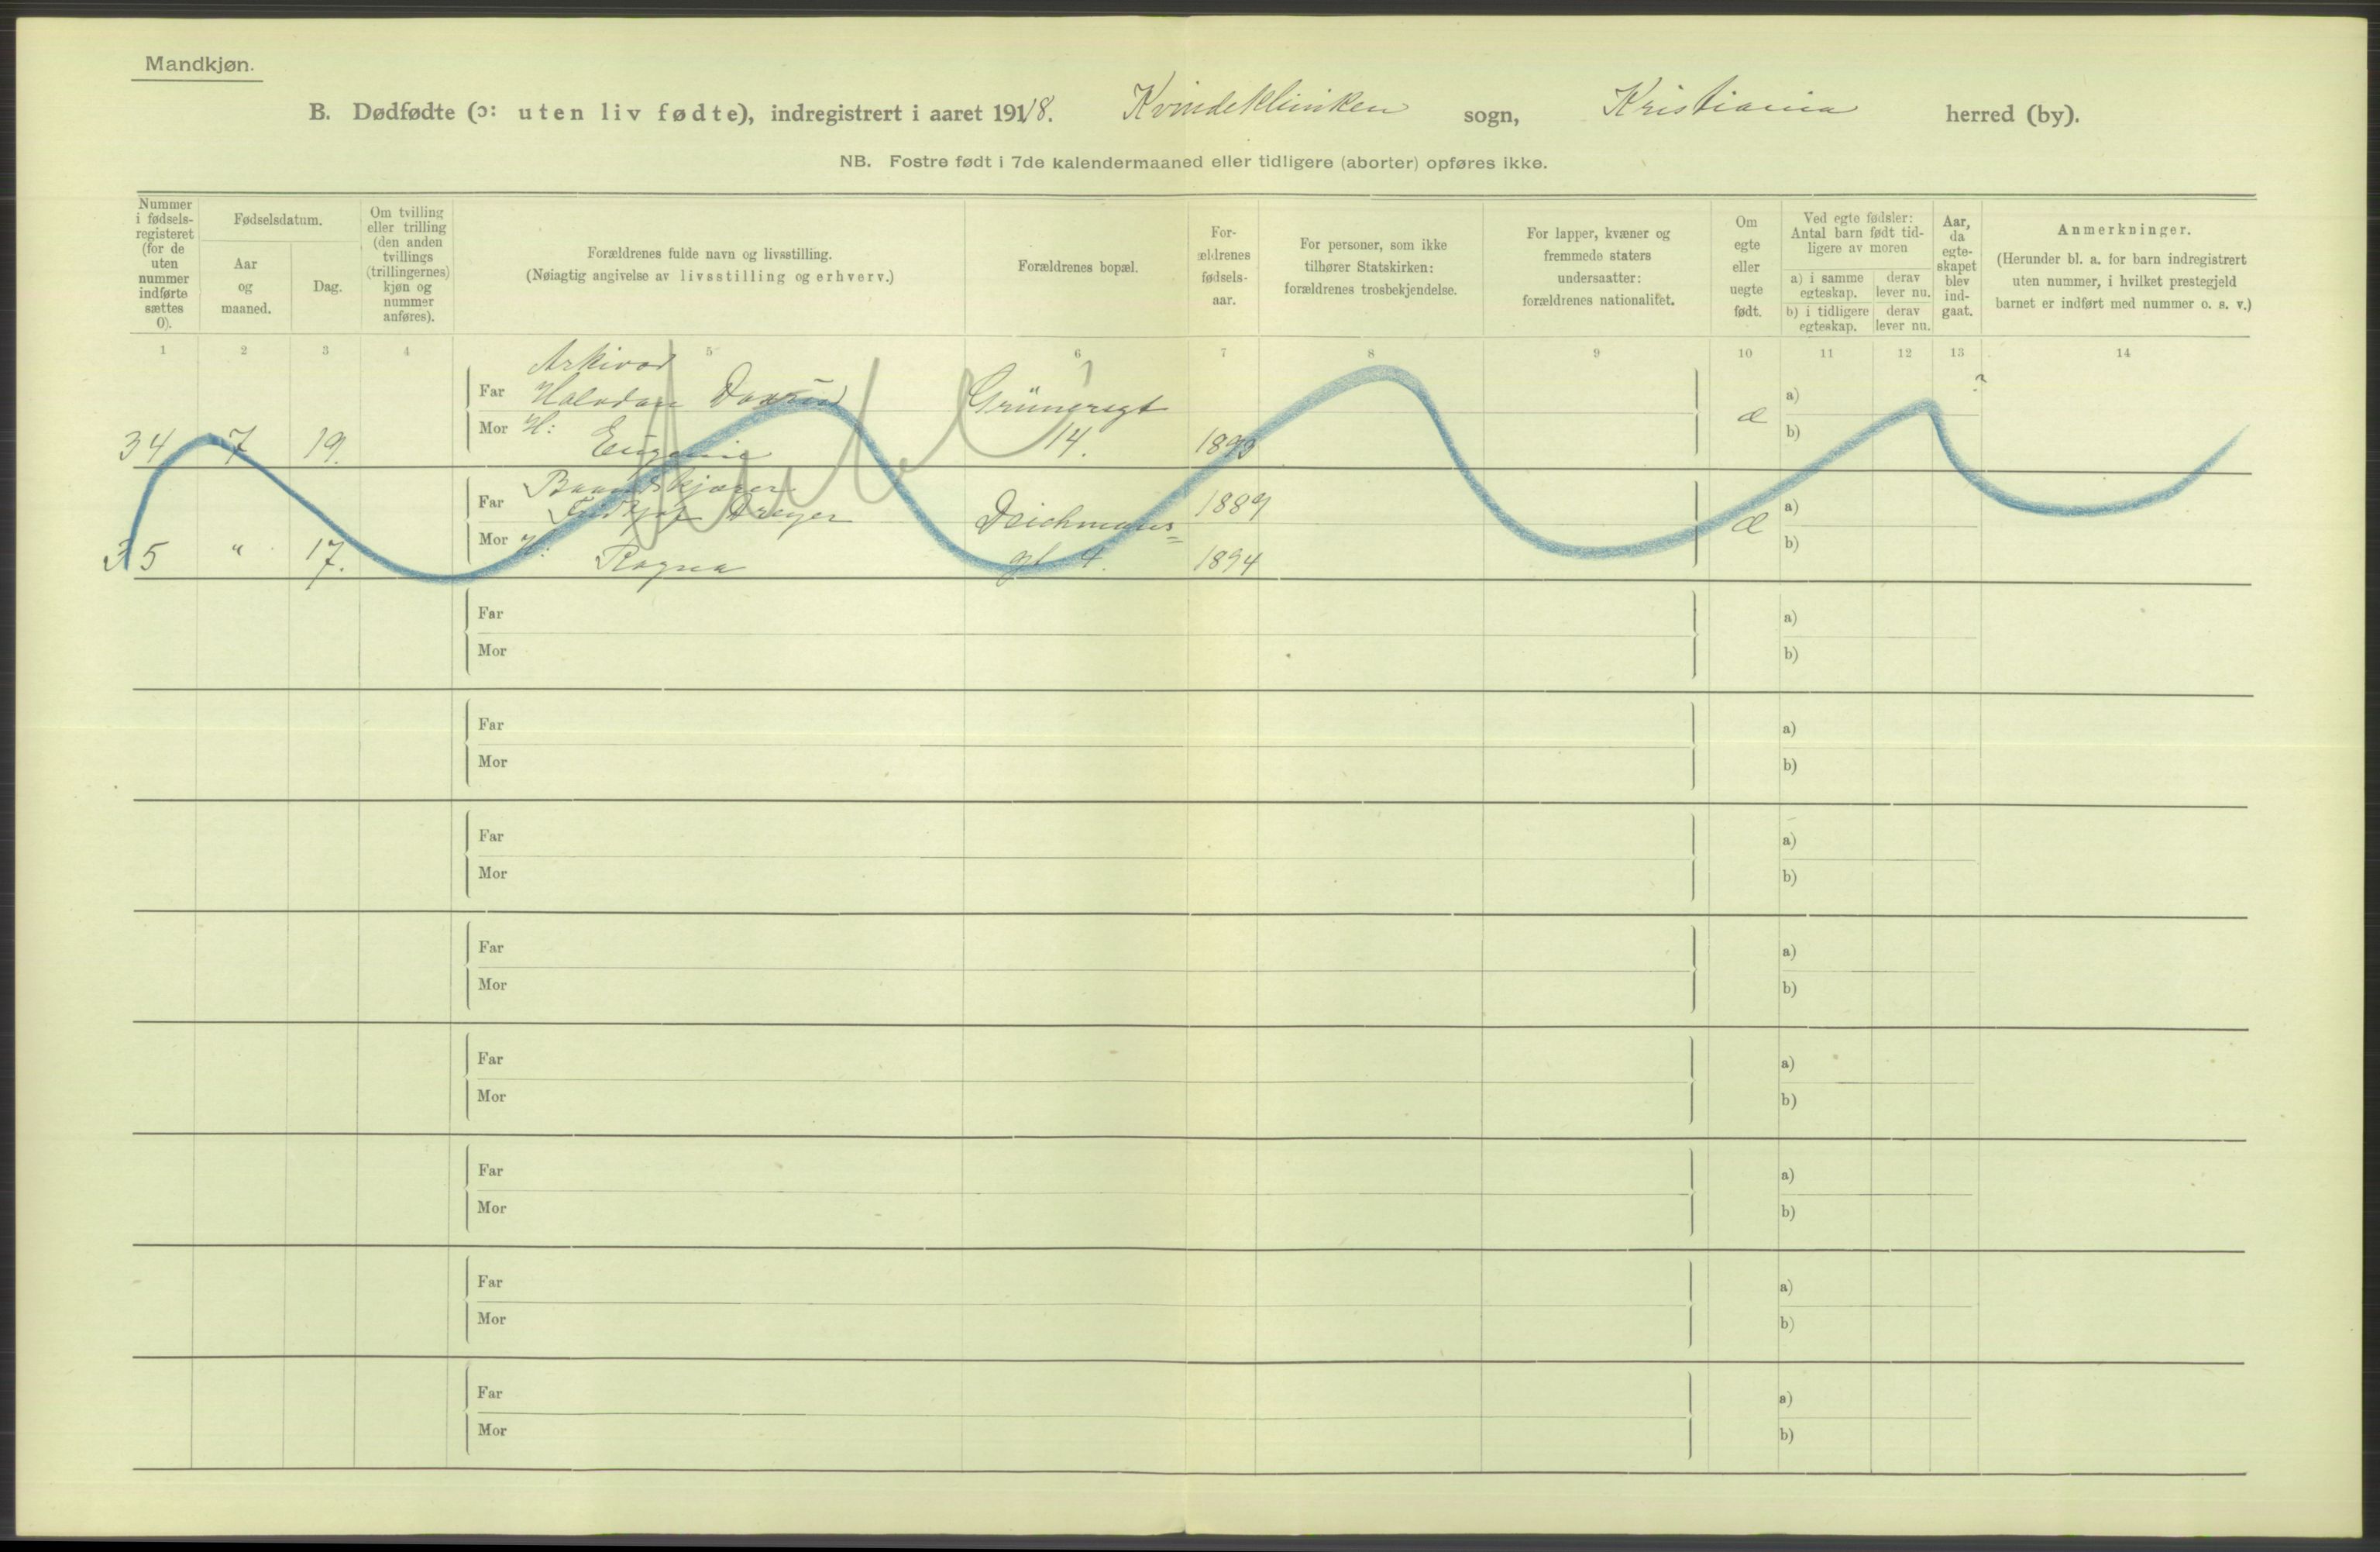 Mandkjøn.
B. Dødfødte (ɔ: uten liv fødte), indregistrert i aaret 1918. Kvindeklinikken sogn, Kristiania herred (by).
NB. Fostre født i 7de kalendermaaned eller tidligere (aborter) opføres ikke.
Nummer i fødsels-registeret (for de uten nummer indførte sættes 0).
Fødselsdatum.
Aar og maaned.
Dag.
Om tvilling eller trilling (den anden tvillings (trillingernes) kjøn og nummer anføres).
Forældrenes fulde navn og livsstilling.
(Nøiagtig angivelse av livsstilling og erhverv.)
Forældrenes bopæl.
For-ældrenes fødsels-aar.
For personer, som ikke tilhører Statskirken: forældrenes trosbekjendelse.
For lapper, kvæner og fremmede staters undersaatter: forældrenes nationalitet.
Om egte eller uegte født.
Ved egte fødsler: Antal barn født tid-ligere av moren
a) i samme egteskap. derav lever nu.
b) i tidligere egteskap. derav lever nu.
Aar, da egte-skapet blev ind-gaat.
Anmerkninger.
(Herunder bl. a. for barn indregistrert uten nummer, i hvilket prestegjeld barnet er indført med nummer o. s. v.)
1 2 3 4 5 6 7 8 9 10 11 12 13 14
Arkivar
Far Halvdan Grünersgt a) ?
34 7 19. Mor H: Eugenie 14. 1893 æ b)
Far Dreyer Deichmans= 1889 a)
35 " 17. Mor H: Ragna gt 4. 1894 æ b)
Far a)
Mor b)
Far a)
Mor b)
Far a)
Mor b)
Far a)
Mor b)
Far a)
Mor b)
Far a)
Mor b)
Far a)
Mor b)
Far a)
Mor b)